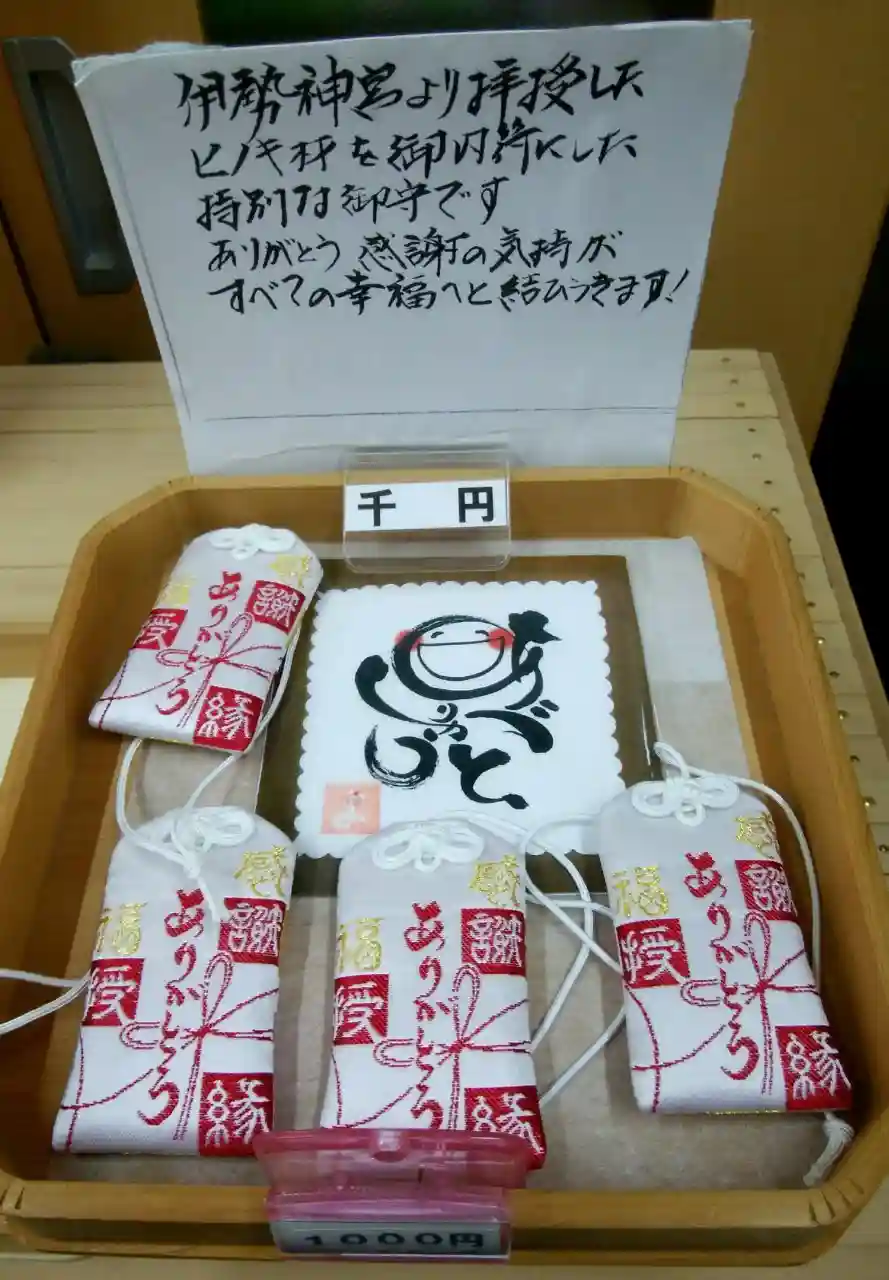 伊勢神宮より拝授した
ヒノキ材を御内符にした
特別な御守です
ありがとう感謝の気持が
すべての幸福へと結びつきます!
千 円
ありがとう
感
謝
福
授
ありがとう
縁
感
謝
福
授
ありがとう
縁
感
謝
福
授
ありがとう
縁
感
謝
福
授
ありがとう
縁
1000円